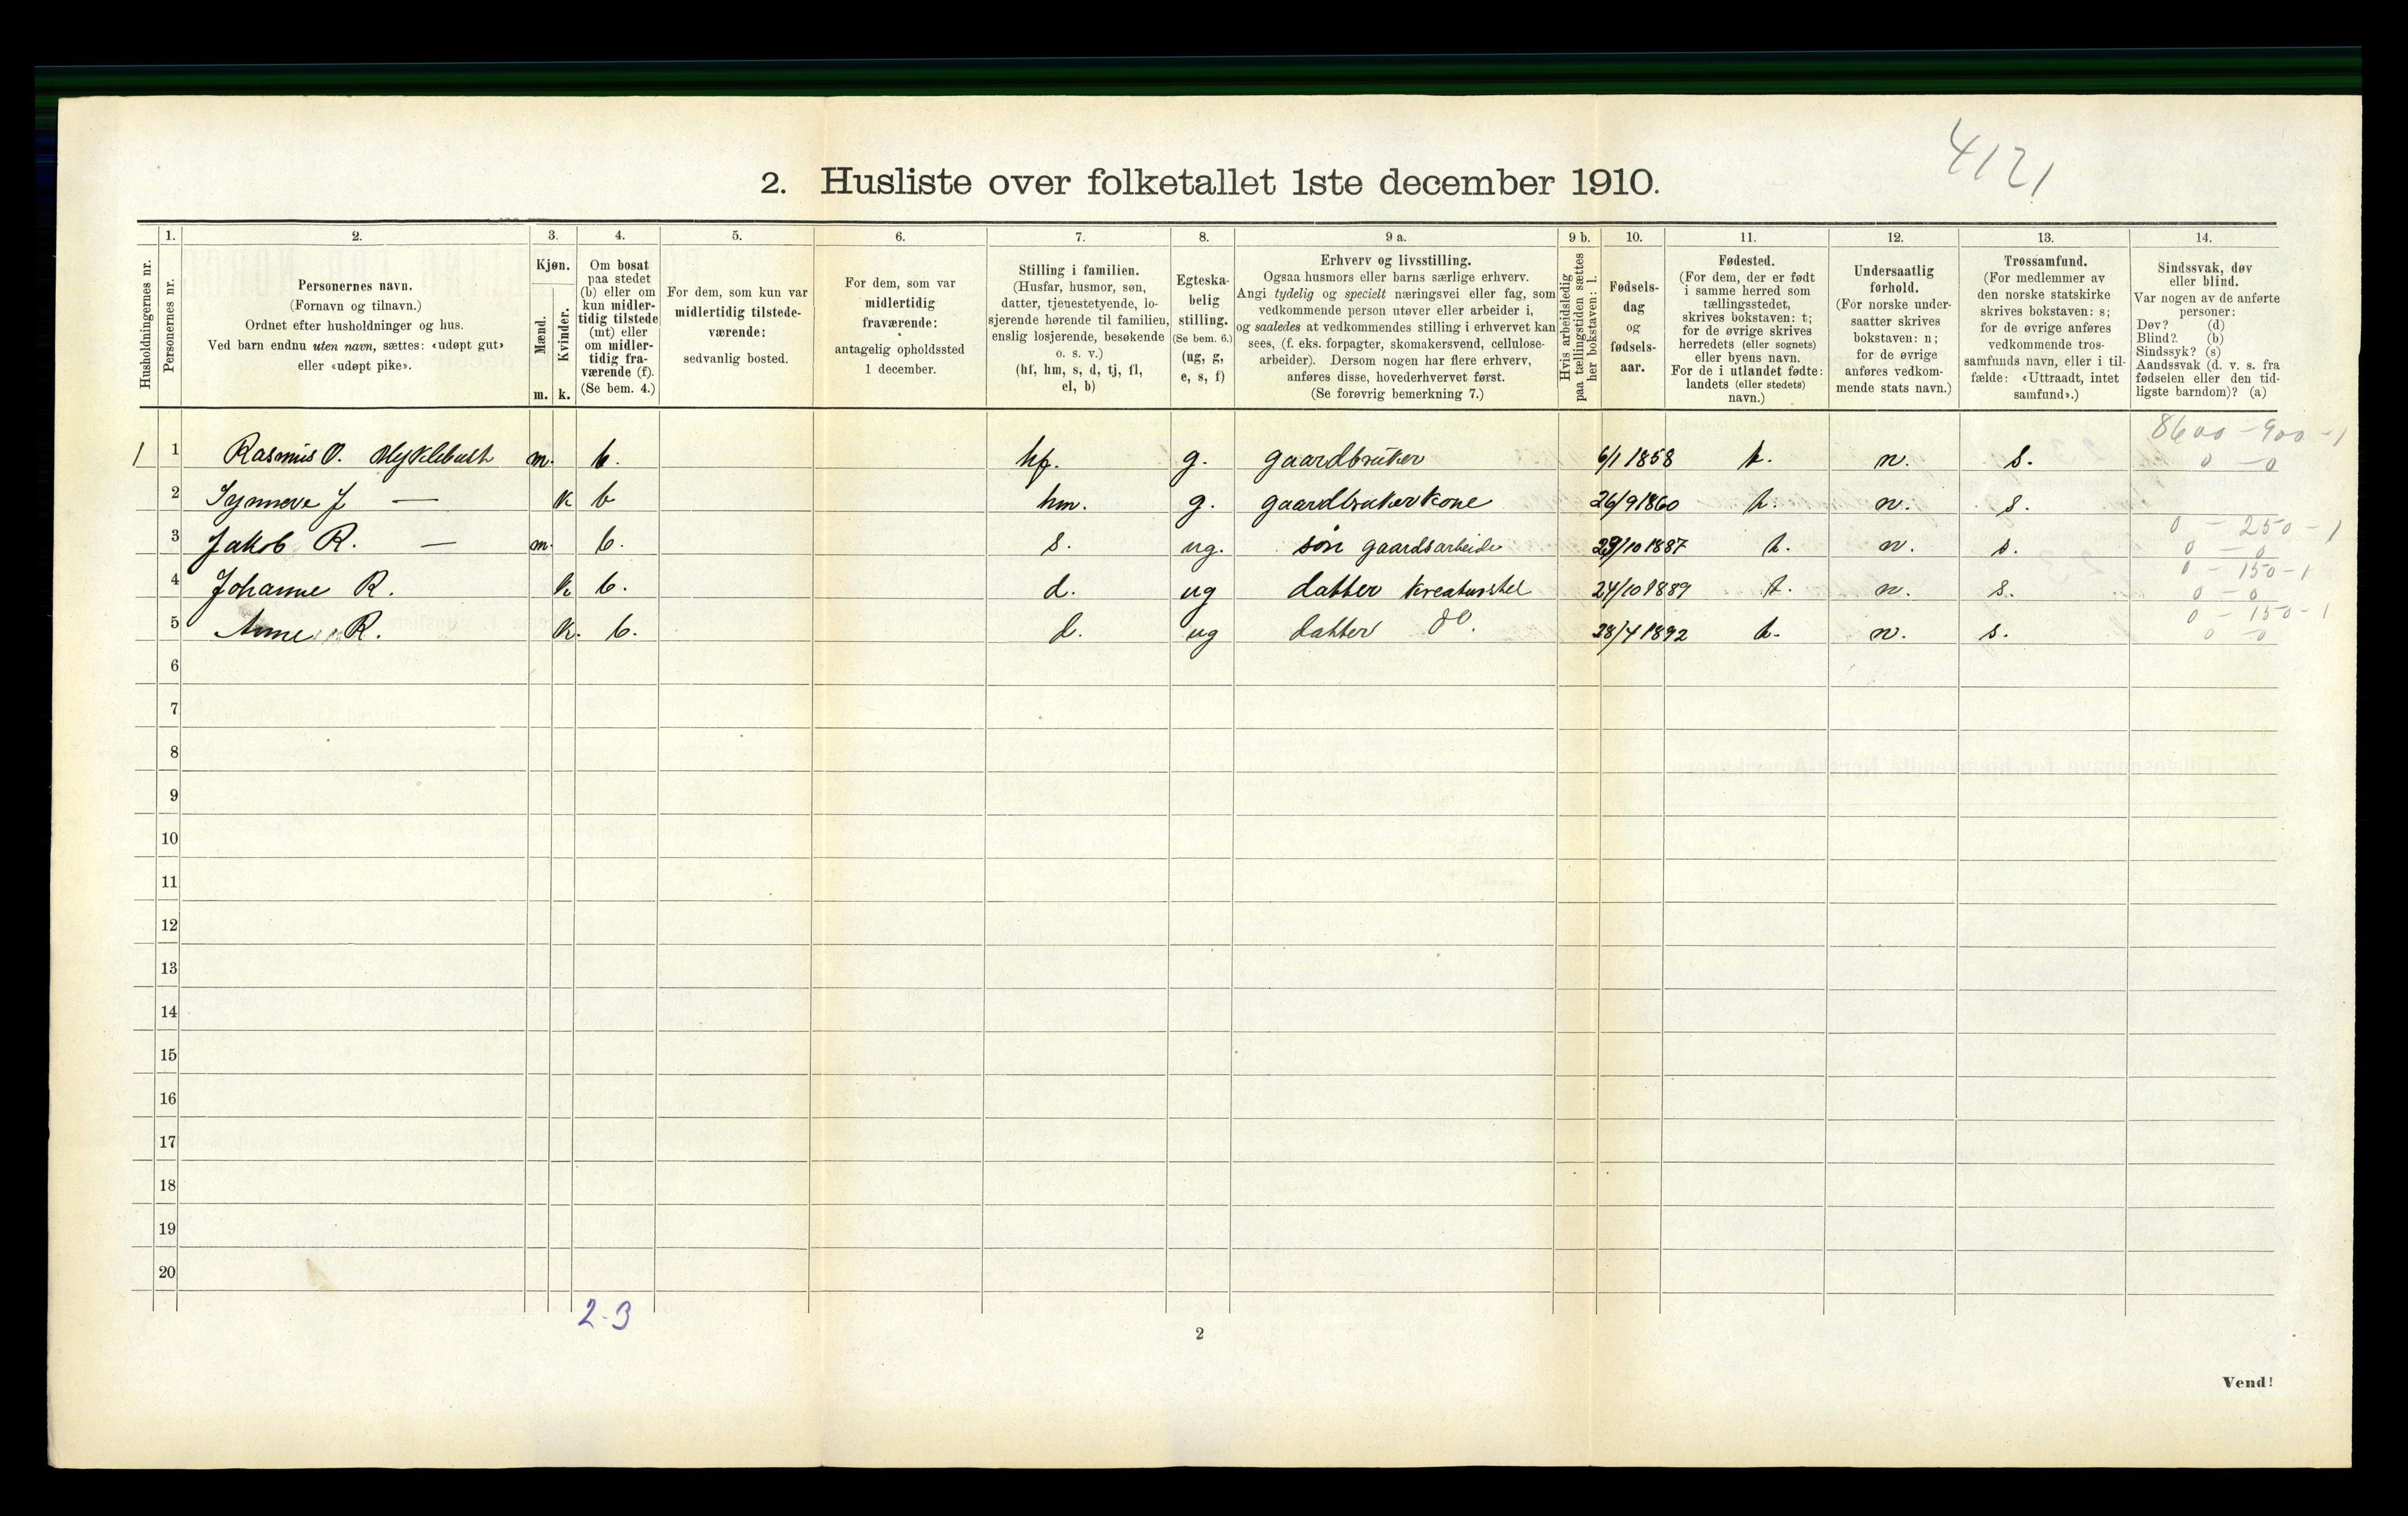 4121
2. Husliste over folketallet 1ste december 1910.
Husholdningernes nr.
1.
Personernes nr.
2.
Personernes navn.
(Fornavn og tilnavn.)
Ordnet efter husholdninger og hus.
Ved barn endnu uten navn, sættes: «udøpt gut»
eller «udøpt pike».
3.
Kjøn.
Mænd.
m.
Kvinder.
k.
4.
Om bosat
paa stedet
(b) eller om
kun midler-
tidig tilstede
(mt) eller
om midler-
tidig fra-
værende (f).
(Se bem. 4.)
5.
For dem, som kun var
midlertidig tilstede-
værende:
sedvanlig bosted.
6.
For dem, som var
midlertidig
fraværende:
antagelig opholdssted
1 december.
7.
Stilling i familien.
(Husfar, husmor, søn,
datter, tjenestetyende, lo-
sjerende hørende til familien,
enslig losjerende, besøkende
o. s. v.)
(hf, hm, s, d, tj, fl,
el, b)
8.
Egteska-
belig
stilling.
(Se bem. 6.)
(ug, g,
e, s, f)
9 a.
Erhverv og livsstilling.
Ogsaa husmors eller barns særlige erhverv.
Angi tydelig og specielt næringsvei eller fag, som
vedkommende person utøver eller arbeider i,
og saaledes at vedkommendes stilling i erhvervet kan
sees, (f. eks. forpagter, skomakersvend, cellulose-
arbeider). Dersom nogen har flere erhverv,
anføres disse, hovederhvervet først.
(Se forøvrig bemerkning 7.)
9 b.
Hvis arbeidsledig
paa tællingstiden sættes
her bokstaven: l.
10.
Fødsels-
dag
og
fødsels-
aar.
11.
Fødested.
(For dem, der er født
i samme herred som
tællingsstedet,
skrives bokstaven: t;
for de øvrige skrives
herredets (eller sognets)
eller byens navn.
For de i utlandet fødte:
landets (eller stedets)
navn.)
12.
Undersaatlig
forhold.
(For norske under-
saatter skrives
bokstaven: n;
for de øvrige
anføres vedkom-
mende stats navn.)
13.
Trossamfund.
(For medlemmer av
den norske statskirke
skrives bokstaven: s;
for de øvrige anføres
vedkommende tros-
samfunds navn, eller i til-
fælde: «Uttraadt, intet
samfund».)
14.
Sindssvak, døv
eller blind.
Var nogen av de anførte
personer:
Døv? (d)
Blind? (b)
Sindssyk? (s)
Aandssvak (d. v. s. fra
fødselen eller den tid-
ligste barndom)? (a)
8600 - 900 - 1
1 1 Rasmus O. Myklebust m. b. hf. g. gaardbruker 6/1 1858 t. n. s. 0 - 0
2 Synneve J — k b hm. g. gaardbrukerkone 26/9 1860 t. n. s.
0 - 250 - 1
3 Jakob R. — m. b. s. ug. søn gaardsarbeide 29/10 1887 t. n. s. 0 - 0
0 - 150 - 1
4 Johanne R. k b. d. ug datter kreaturstel 24/10 1889 t. n. s. 0 - 0
0 - 150 - 1
5 Anne R. k. b. d. ug datter do. 28/4 1892 t. n. s. 0 - 0
6
7
8
9
10
11
12
13
14
15
16
17
18
19
20
2-3
2
Vend!